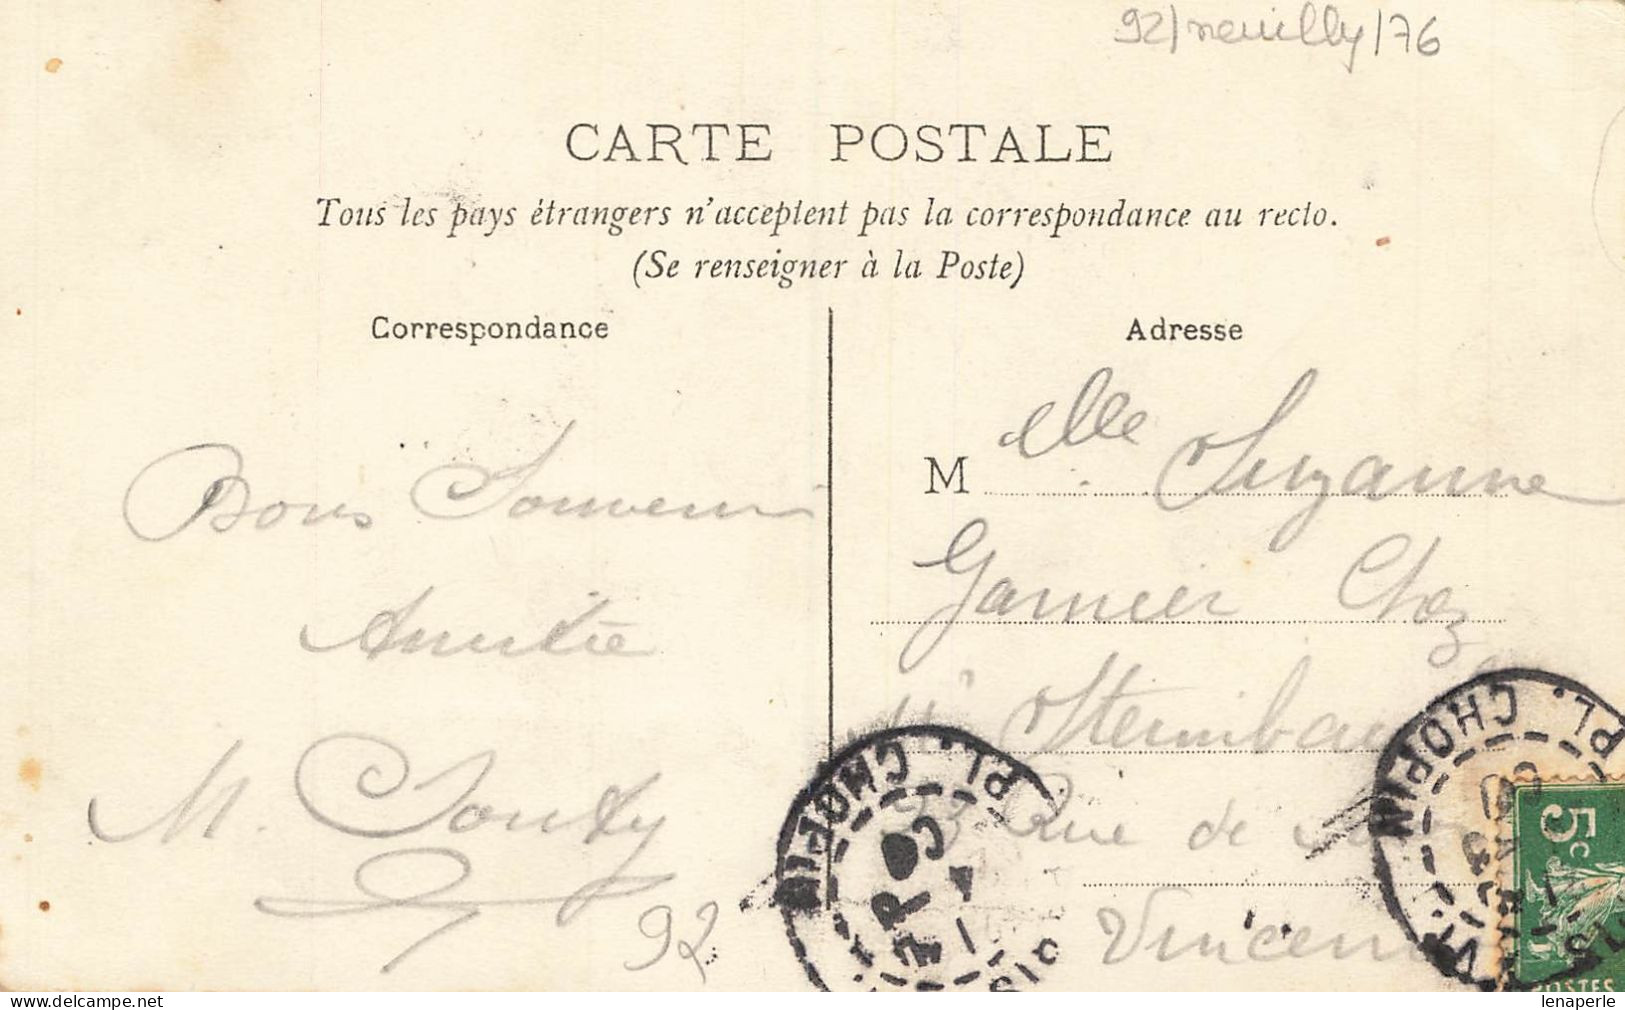 92/neuilly/76
CARTE POSTALE
Tous les pays étrangers n'acceptent pas la correspondance au recto.
(Se renseigner à la Poste)
Correspondance
Adresse
Bons Souvenir
Amitié
M. Souty
92
M elle Suzanne
Garnier Chez
Sternibau
Rue de
Vincen
PL. CHOPIN
PL. CHOPIN
5c
POSTES
lenaperle